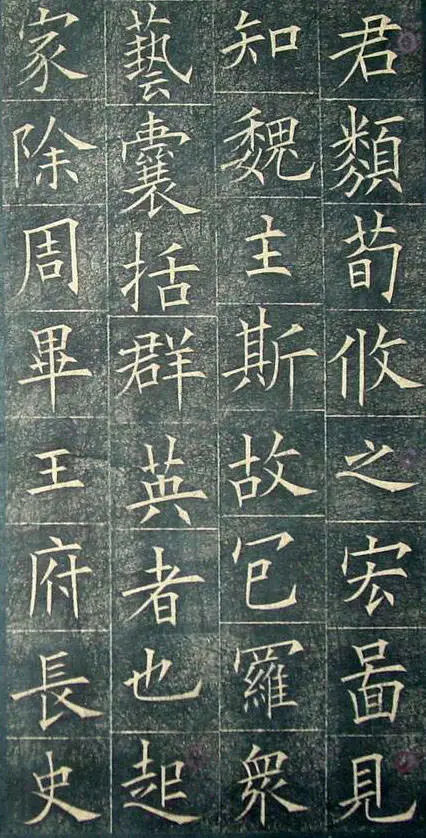 君類荀攸之宏啚見
知魏主斯故苞羅衆
藝囊括群英者也起
家除周畢王府長史